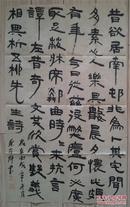 昔欲居南邨非為卜其宅聞
多素心人樂與數晨夕懷此頗
有年今日從茲役弊廬何必廣
取足蔽牀席鄰曲時々来抗言
譚在昔奇文共欣賞疑義
相與析五柳先生詩